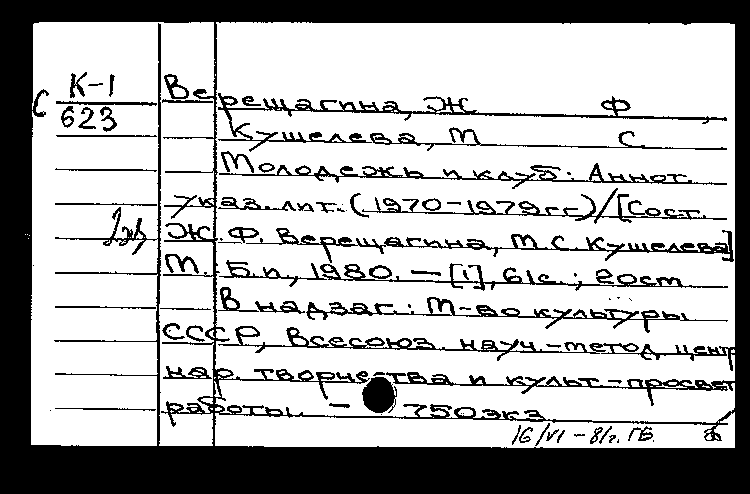 К-1
С 623
Верещагина, Ж Ф ,
Кушелева, М С.
Молодежь и клуб: Аннот.
указ. лит. (1970-1979гг)/[Сост.
Ж. Ф. Верещагина, М. С. Кушелева]
М.: Б.и., 1980. — [1], 61с.;
В надзаг.: М-во культуры
СССР, Всесоюз. науч.-метод центр
нар. творчества и культ-просвет
работы. — 750экз
16/VI - 81г. ГБ.